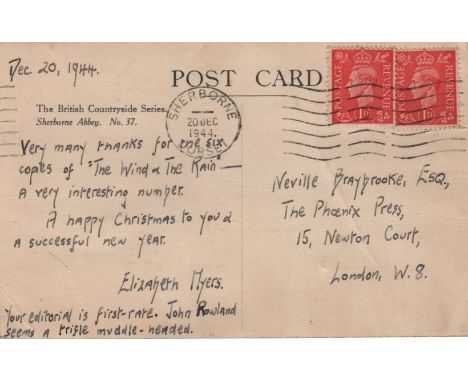 Dec. 20, 1944.
POST CARD
The British Countryside Series.
Sherborne Abbey. No. 37.
SHERBORNE
20 DEC
1944
DORSET
POSTAGE REVENUE
1D
POSTAGE REVENUE
1D
Very many thanks for the six
copies of "The Wind & The Rain" —
a very interesting number.
A happy Christmas to you &
a successful new year.
Elizabeth Myers.
Your editorial is first-rate. John Rowland
seems a trifle muddle-headed.
Neville Braybrooke, Esq.,
The Phœnix Press,
15, Newton Court,
London, W.8.